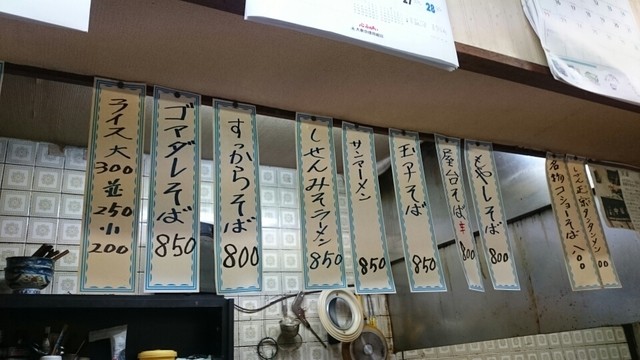 27
28
ライス大300並250小200
ゴマダレそば850
すっからそば800
しせんみそラーメン850
サンマーメン850
玉子そば850
屋台そば辛800
もやしそば800
名物コショーそば八〇〇